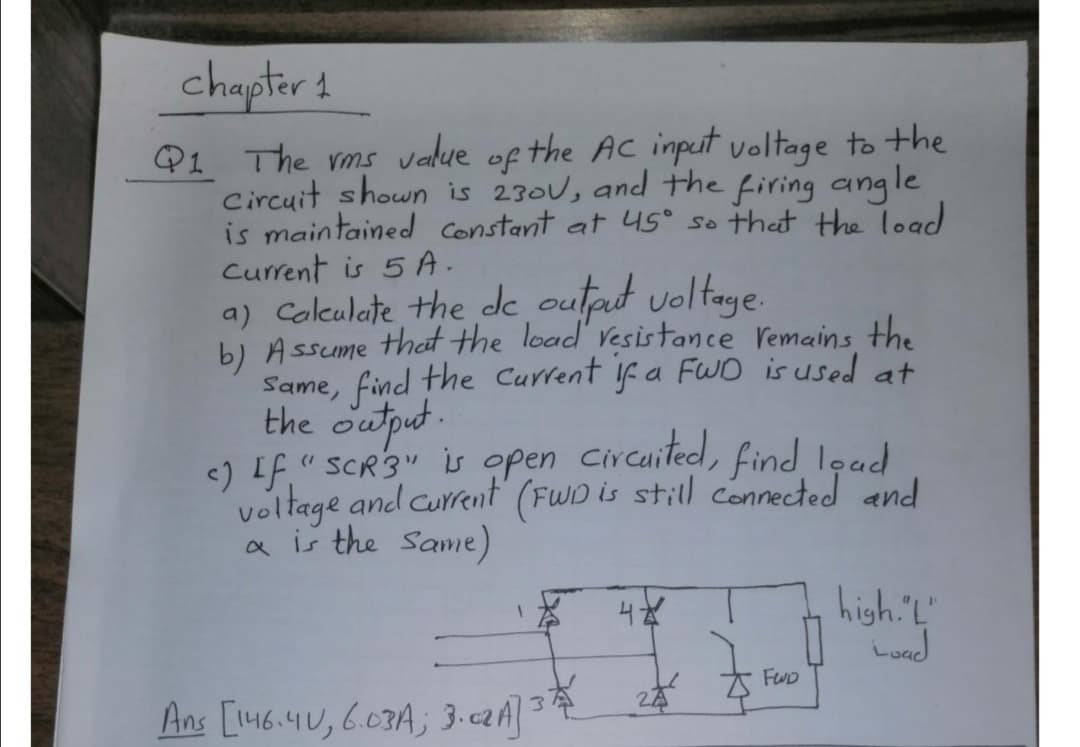 chapter 1
Q1 The rms value of the AC input voltage to the
circuit shown is 230V, and the firing angle
is maintained constant at 45° so that the load
current is 5 A.
a) Calculate the dc output voltage.
b) Assume that the load resistance remains the
same, find the current if a FWD is used at
the output.
c) If "SCR3" is open circuited, find load
voltage and current (FWD is still connected and
α is the same)
1
4
high "L"
Load
FWD
3
2
Ans [146.4V, 6.03A; 3.02A]